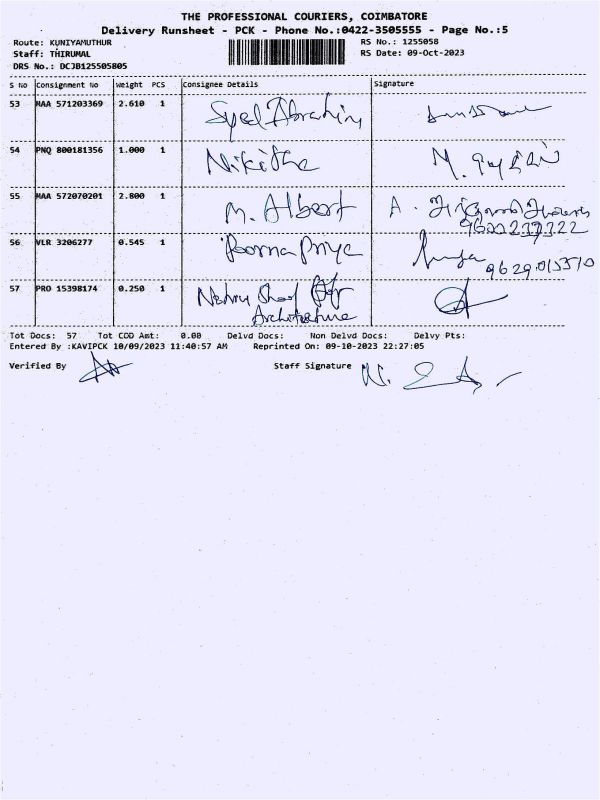 THE PROFESSIONAL COURIERS, COIMBATORE
Delivery Runsheet - PCK - Phone No.:0422-3505555 - Page No.:5
Route: KUNIYAMUTHUR RS No.: 1255058
Staff: THIRUMAL RS Date: 09-Oct-2023
DRS No.: DCJB125505805
S No Consignment No Weight PCS Consignee Details Signature
53 MAA 571203369 2.610 1 Syed Ibrahim
54 PNQ 800181356 1.000 1 Nikitha M.
55 MAA 572070201 2.800 1 M. Albert A.
56 VLR 3206277 0.545 1 Poorna Priya
57 PRO 15398174 0.250 1 Nehru
Architecture
Tot Docs: 57 Tot COD Amt: 0.00 Delvd Docs: Non Delvd Docs: Delvy Pts:
Entered By :KAVIPCK 10/09/2023 11:40:57 AM Reprinted On: 09-10-2023 22:27:05
Verified By Staff Signature N.